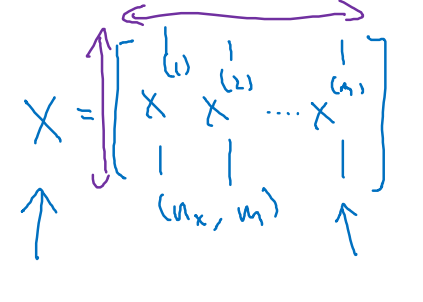 X = [ x⁽¹⁾ x⁽²⁾ ..... x⁽ᵐ⁾ ]
(nₓ, m)